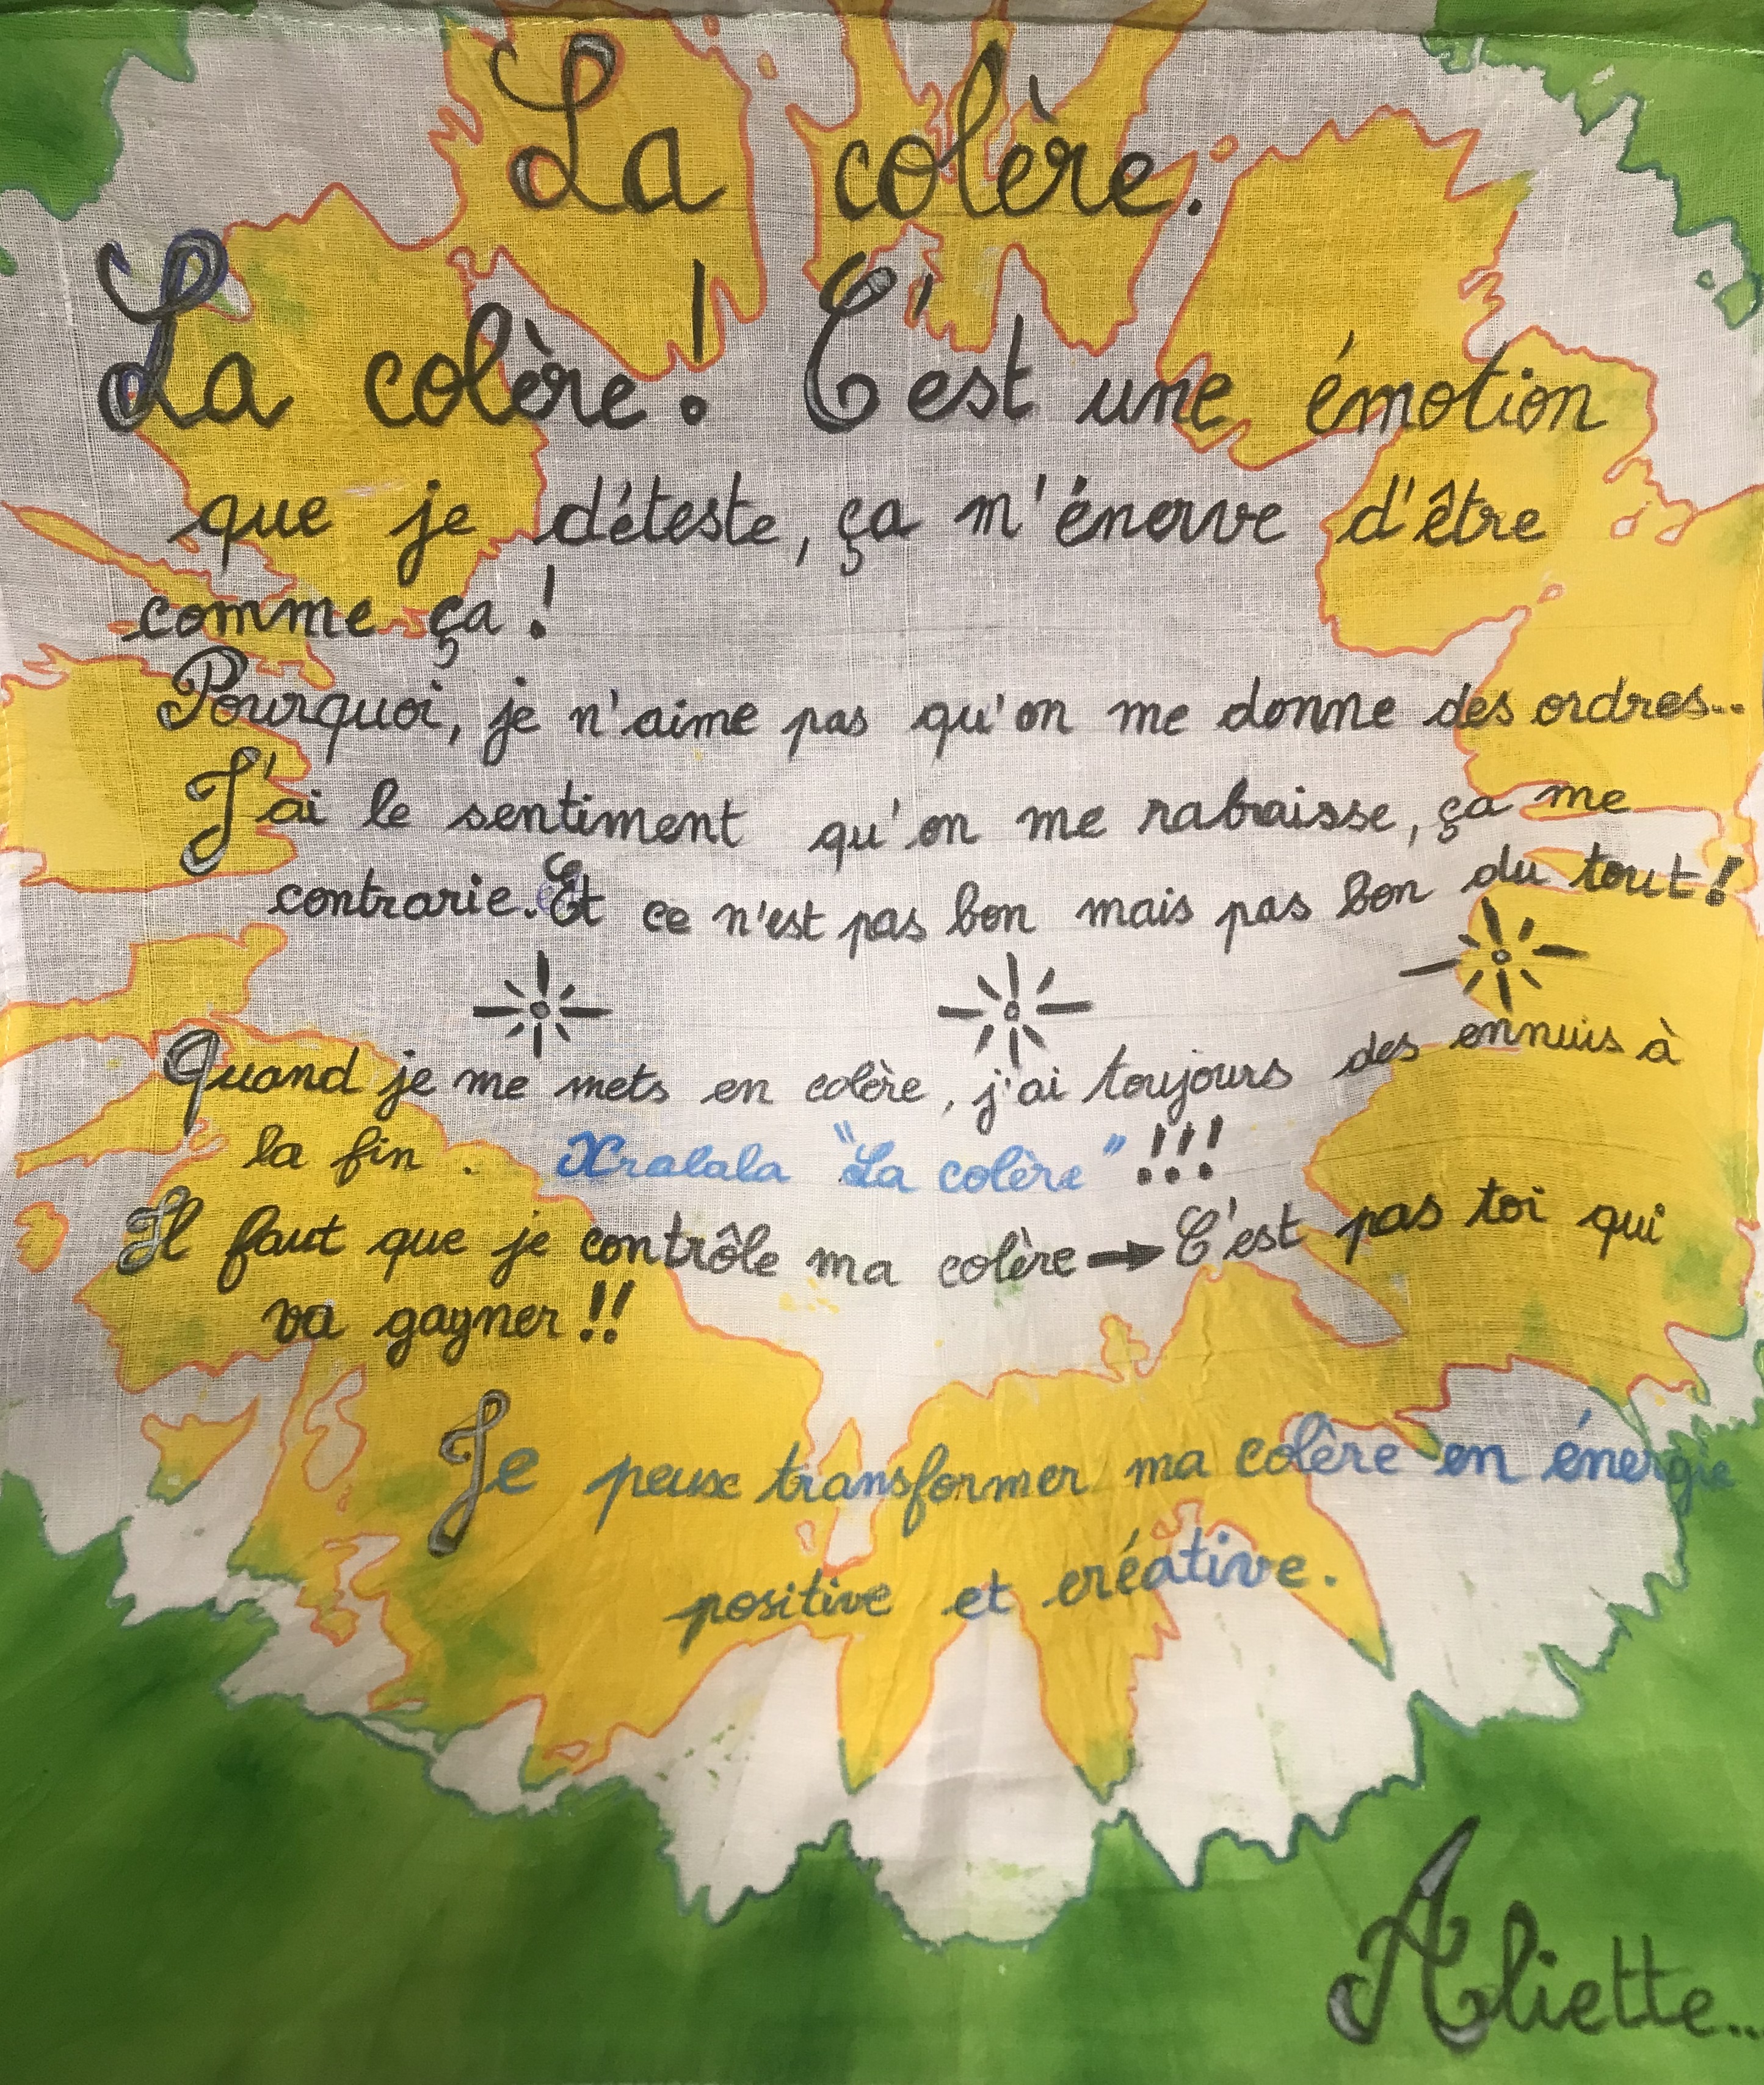 La colère.
La colère! C'est une émotion
que je déteste, ça m'énerve d'être
comme ça!
Pourquoi, je n'aime pas qu'on me donne des ordres...
J'ai le sentiment qu'on me rabaisse, ça me
contrarie. Et ce n'est pas bon mais pas bon du tout!
Quand je me mets en colère, j'ai toujours des ennuis à
la fin. Xralala "La colère"!!!
Il faut que je contrôle ma colère → C'est pas toi qui
va gagner!!
Je peux transformer ma colère en énergie
positive et créative.
Aliette...